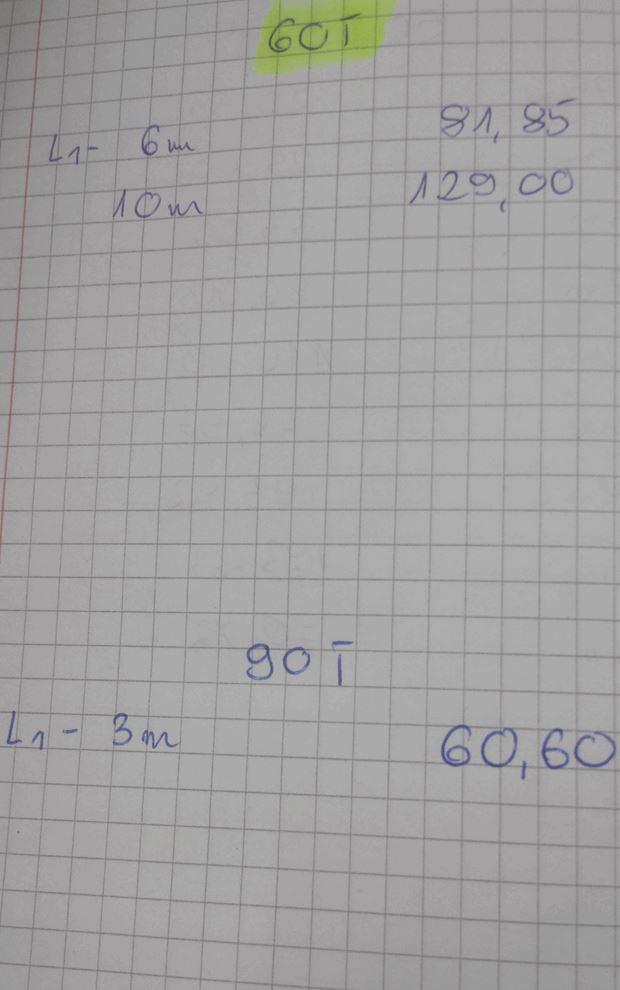 60T
L1- 6m 81,85
10m 129,00
90T
L1- 3m 60,60